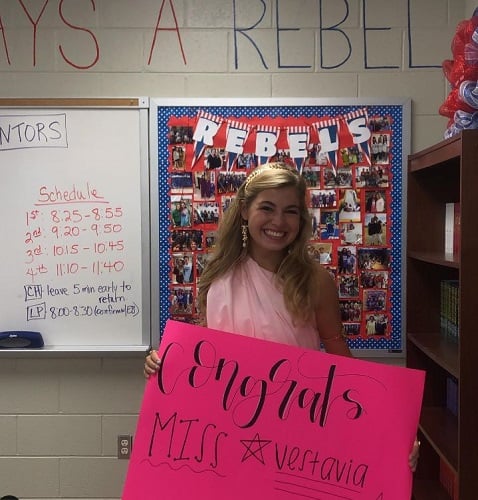 AYS A REBEL
NTORS
REBELS
Schedule
1st: 8:25-8:55
2nd: 9:20-9:50
3rd: 10:15-10:45
4th: 11:10-11:40
CH leave 5 min early to
return
LP 8:00-8:30 (confirm w/EB)
Congrats
MISS ☆ vestavia